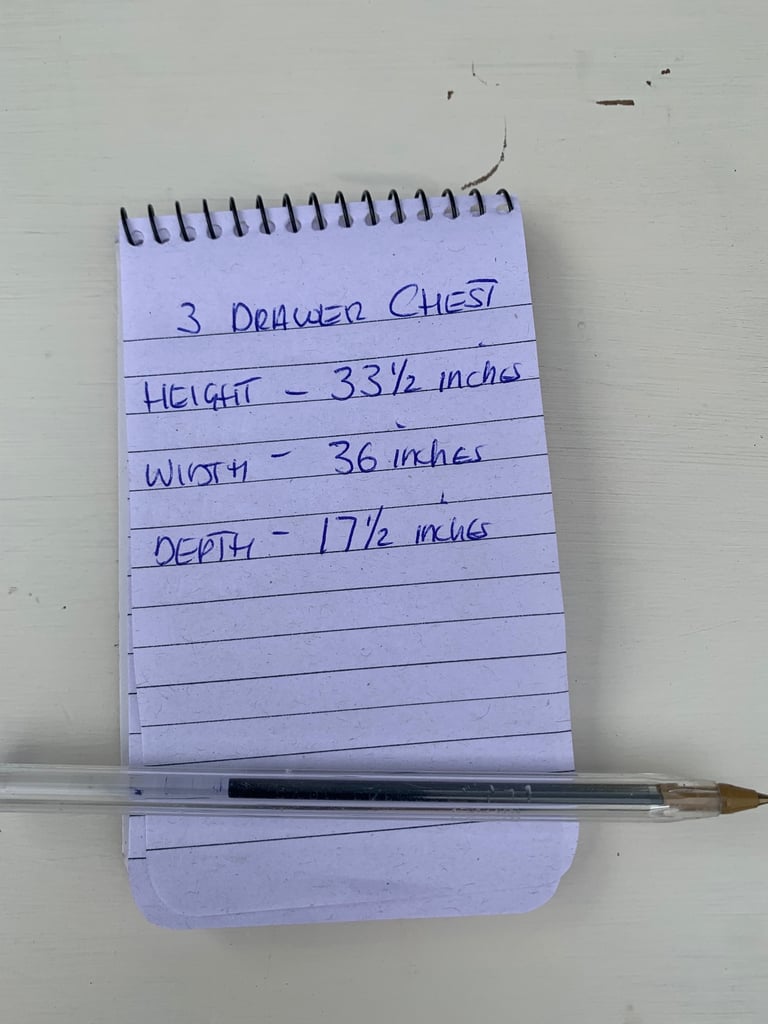 3 DRAWER CHEST
HEIGHT - 33 1/2 inches
WIDTH - 36 inches
DEPTH - 17 1/2 inches